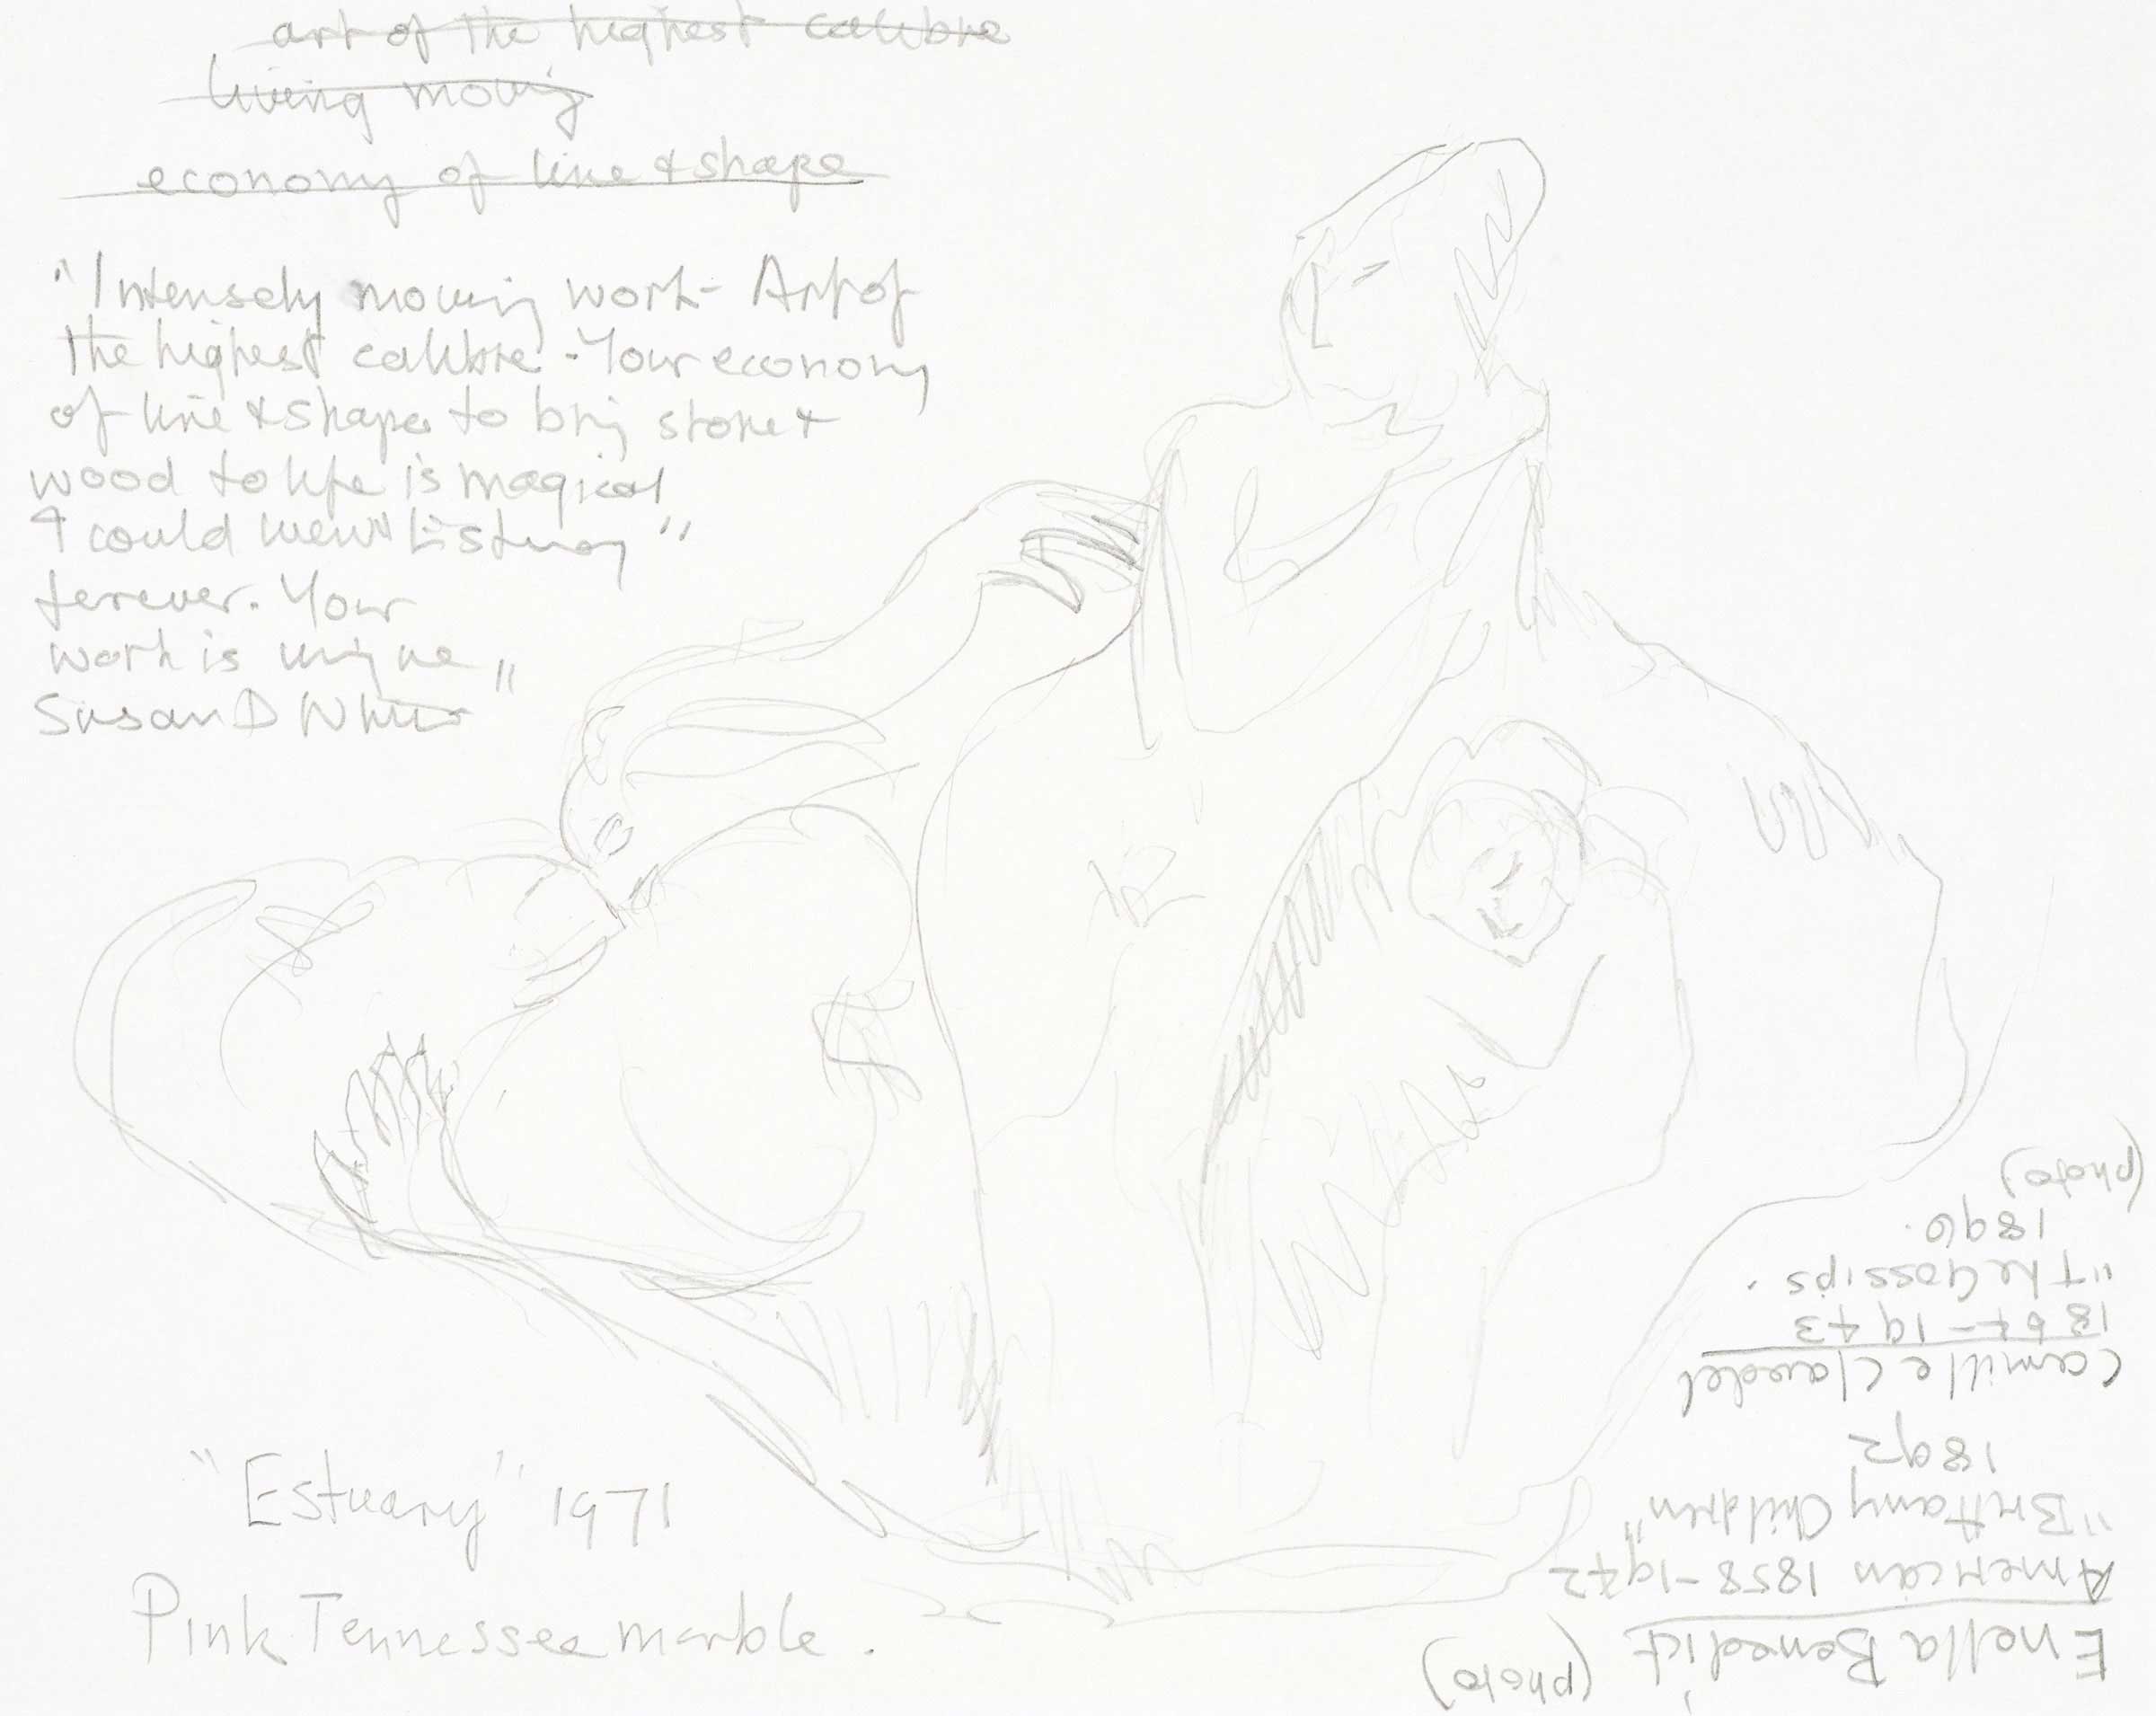 art of the highest calibre
living moving
economy of line & shape
"Intensely moving work - Art of
the highest calibre. - Your economy
of line & shape to bring stone &
wood to life is magical
I could view Estuary"
forever. Your
work is unique"
Susan D
"Estuary" 1971
Pink Tennessee marble.
Enella Benedict (photo)
American 1858-1942
"Brittany Children"
1892
Camille Claudel
1864-1943
"The Gossips.
1896.
(photo)